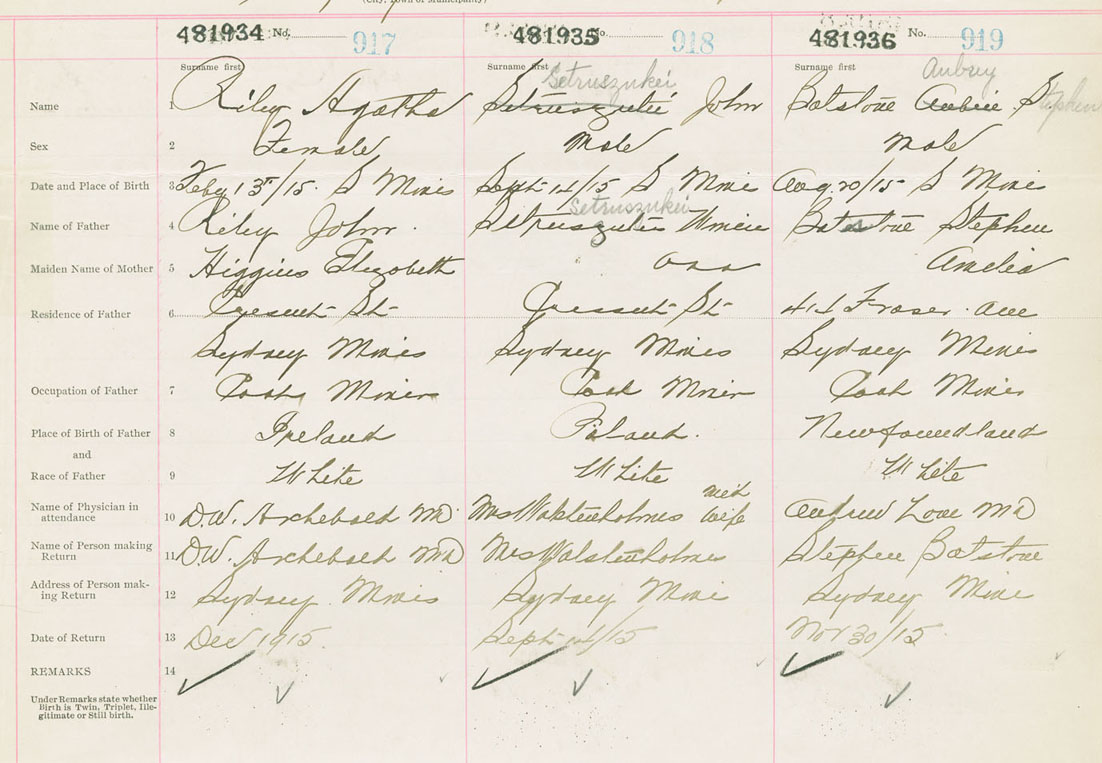 (City, Town or Municipality)
481934 No. 917 481935 No. 918 481936 No. 919
Surname first Surname first Surname first
Setruszukei Aubrey
Name 1 Riley Agatha John Batstone Aubrie Stephen
Sex 2 Female Male Male
Date and Place of Birth 3 Feby 13/15. S Mines Sept 14/15 S Mines Aug 20/15 S Mines
Setruszukei
Name of Father 4 Riley John. Batstone Stephen
Maiden Name of Mother 5 Higgins Elizabeth Amelia
Residence of Father 6 Cresent St Cressent St 414 Fraser Ave
Sydney Mines Sydney Mines Sydney Mines
Occupation of Father 7 Coal Miner Coal Miner Coal Miner
Place of Birth of Father 8 Ireland Poland. Newfoundland
and
Race of Father 9 White White White
Name of Physician in
attendance 10 D.W. Archebald MD Mrs Wolstenholmes mid wife Andrew Love MD
Name of Person making
Return 11 D.W. Archebald MD Mrs Wolstenholmes Stephen Batstone
Address of Person mak-
ing Return 12 Sydney Mines Sydney Mine Sydney Mine
Date of Return 13 Dec 1915. Sept 14/15 Nov 30/15.
REMARKS 14
Under Remarks state whether
Birth is Twin, Triplet, Ille-
gitimate or Still birth.